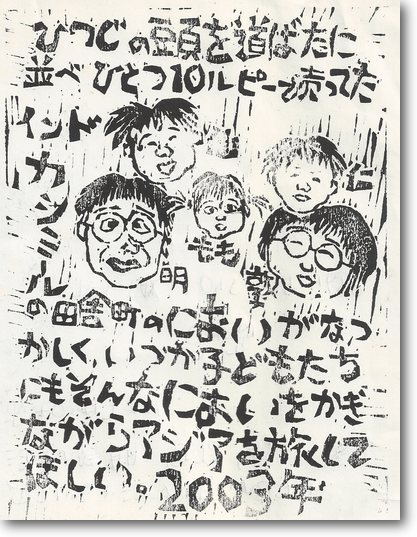 ひつじの頭を道ばたに
並べひとつ10ルピーで売ってた
インド
カシミール
仁
もも
明
の田舎町のにおいがなつ
かしく、いつか子どもたち
にもそんなにおいをかぎ
ながらアジアを旅して
ほしい。2003年